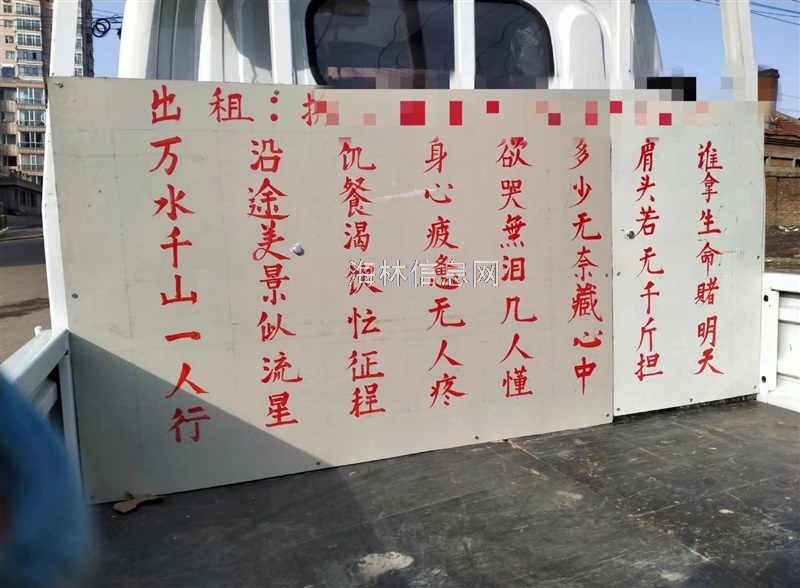 出租：
万水千山一人行
沿途美景似流星
饥餐渴饮忙征程
身心疲惫无人疼
欲哭無泪几人懂
多少无奈藏心中
肩头若无千斤担
谁拿生命赌明天
海林信息网